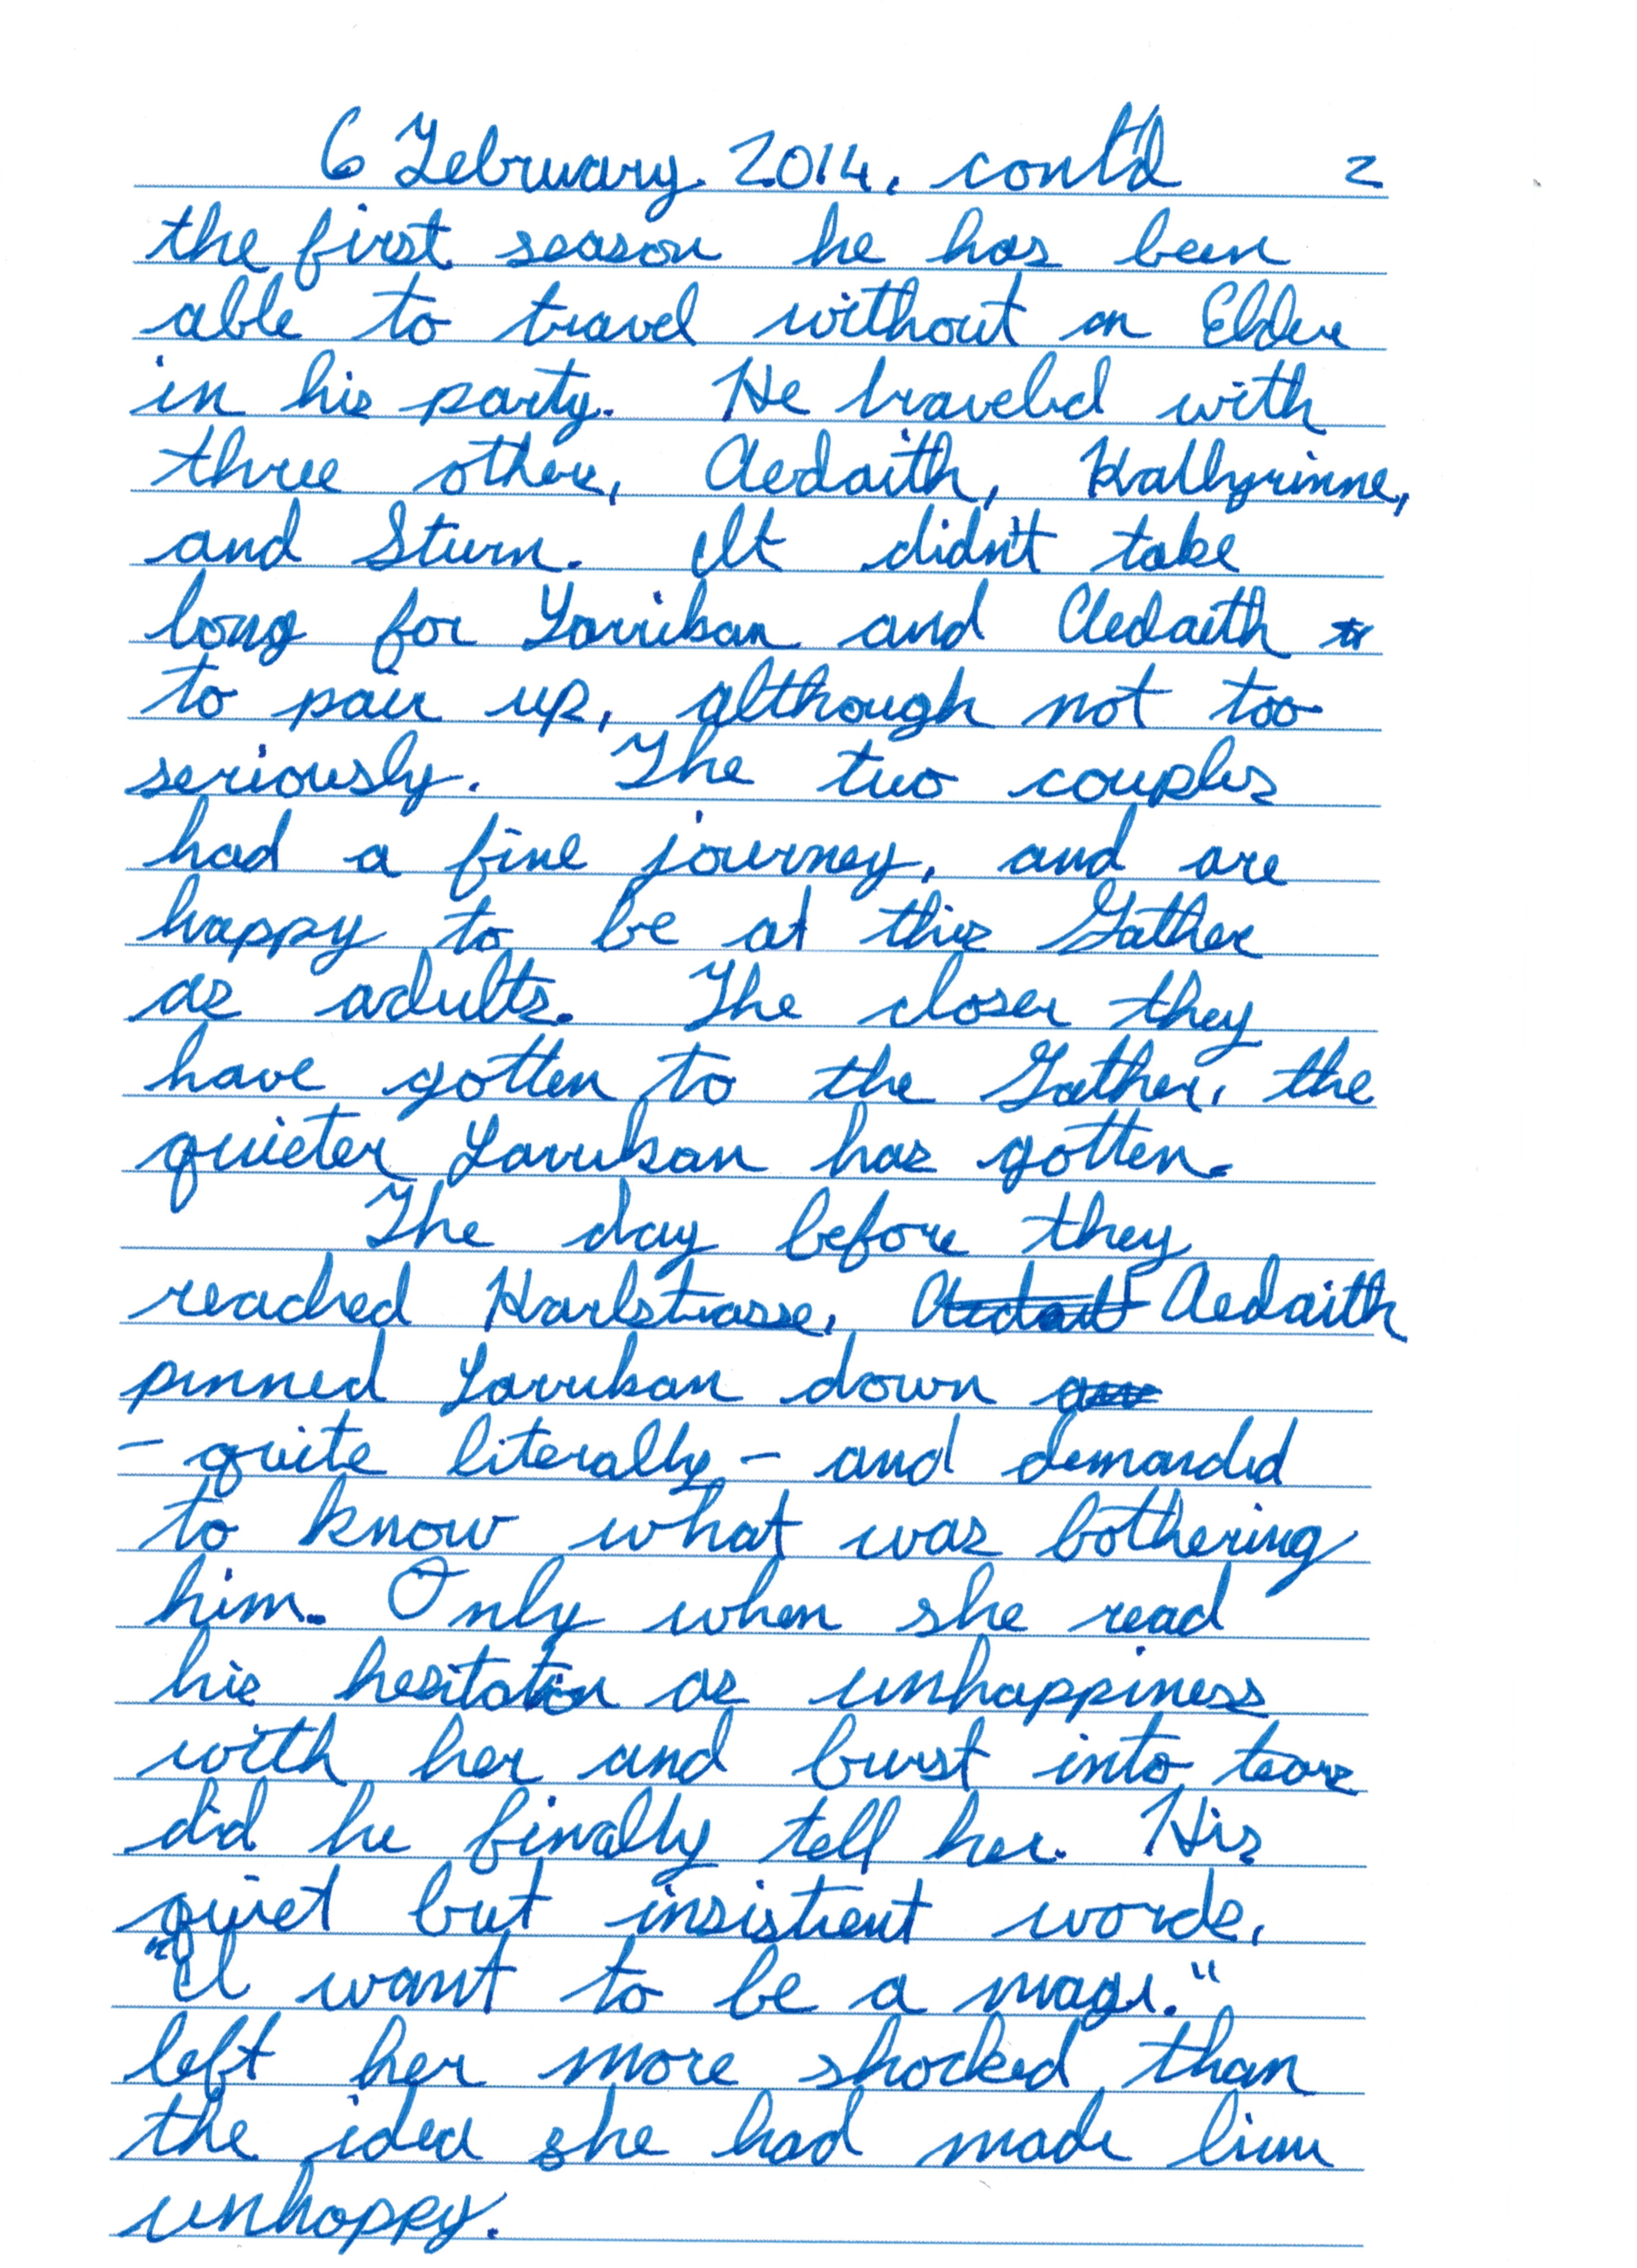 6 February 2014, cont'd 2
the first season he has been
able to travel without an Elder
in his party. He traveled with
three others, Aedaith, Kathyrinne,
and Sturn. It didn't take
long for Yavrikan and Aedaith
to pair up, although not too
seriously. The two couples
had a fine journey, and are
happy to be at this Gather
as adults. The closer they
have gotten to the Gather, the
quieter Yavrikan has gotten.
The day before they
reached Karlstrasse, Aedait Aedaith
pinned Yavrikan down
- quite literally - and demanded
to know what was bothering
him. Only when she read
his hesitation as unhappiness
with her and burst into tears
did he finally tell her. His
quiet but insistent words,
"I want to be a magi."
left her more shocked than
the idea she had made him
unhappy.